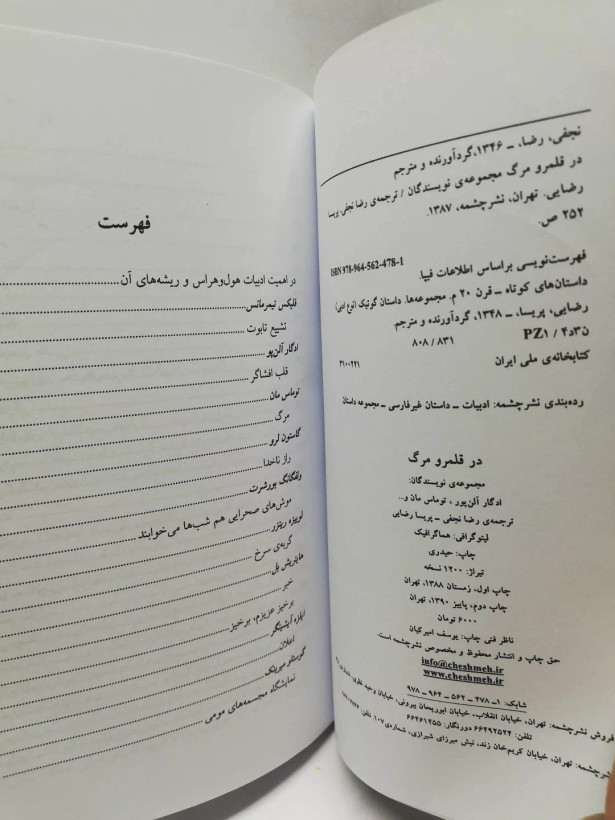 نجفی، رضا، ـ ۱۳۴۶، گردآورنده و مترجم
در قلمرو مرگ مجموعه‌ی نویسندگان / ترجمه‌ی رضا نجفی، پریسا
رضایی. تهران، نشرچشمه، ۱۳۸۷.
۲۵۲ ص.
ISBN 978-964-562-478-1
فهرست‌نویسی براساس اطلاعات فیپا.
داستان‌های کوتاه ـ قرن ۲۰ م. مجموعه‌ها. داستان گوتیک (نوع ادبی)
رضایی، پریسا، ۱۳۴۸، گردآورنده و مترجم.
۸۰۸ / ۸۳۱ PZ۱ / ن۳د۴
کتابخانه‌ی ملی ایران ۳۱۰۰۲۲۱
رده‌بندی نشرچشمه: ادبیات ـ داستان غیرفارسی ـ مجموعه داستان
در قلمرو مرگ
مجموعه‌ی نویسندگان:
ادگار آلن‌پور، توماس مان و...
ترجمه‌ی رضا نجفی ـ پریسا رضایی
لیتوگرافی: هماگرافیک
چاپ: حیدری
تیراژ: ۱۲۰۰ نسخه
چاپ اول، زمستان ۱۳۸۸، تهران
چاپ دوم، پاییز ۱۳۹۰، تهران
۶۰۰۰ تومان
ناظر فنی چاپ: یوسف امیرکیان
حق چاپ و انتشار محفوظ و مخصوص نشرچشمه است.
info@cheshmeh.ir
www.cheshmeh.ir
شابک: ۱ـ ۴۷۸ ـ ۵۶۲ ـ ۹۶۴ ـ ۹۷۸
فروش نشرچشمه: تهران، خیابان انقلاب، خیابان ابوریحان بیرونی، خیابان وحید نظری، شماره‌ی
تلفن: ۶۶۴۹۲۵۲۴ دورنگار: ۶۶۴۶۱۴۵۵
نشرچشمه: تهران، خیابان کریم‌خان زند، نبش میرزای شیرازی، شماره‌ی ۱۰۷. تلفن:
فهرست
در اهمیت ادبیات هول‌وهراس و ریشه‌های آن
فلیکس تیمرمانس
تشییع تابوت
ادگار آلن‌پو
قلب افشاگر
توماس مان
مرگ
گاستون لرو
راز ناخدا
ولفگانگ بورشرت
موش‌های صحرایی هم شب‌ها می‌خوابند
لوییزه رینزر
گربه‌ی سرخ
هاینریش بل
خبر
برخیز عزیزم، برخیز
ایلزه آیشینگر
اعلان
گوستاو میرینک
نمایشگاه مجسمه‌های مومی